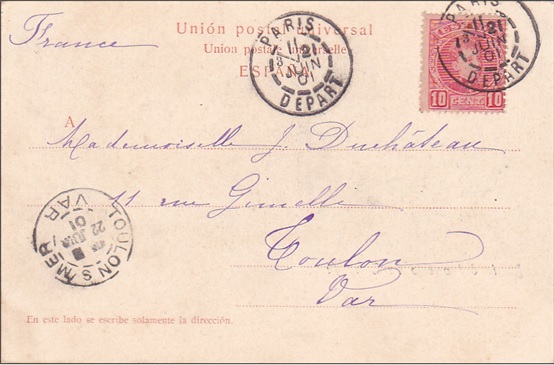 Unión postal universal
Union postale universelle
ESPAÑA
France
PARIS
21
JUIN
01
DEPART
PARIS
21
JUIN
01
DEPART
10 CENT. 10
A
Mademoiselle J. Duchâteau
11 rue Gimelli
Toulon
Var
TOULON S MER
VAR
22
01
En este lado se escribe solamente la dirección.